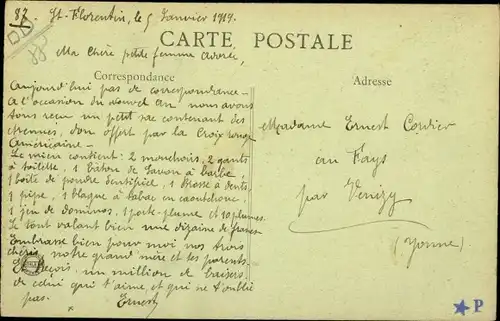 87.
St-Florentin, le 5 Janvier 1919.
CARTE POSTALE
Ma chère petite femme adorée,
Correspondance
Adresse
Aujourd'hui pas de correspondance -
A l'occasion du nouvel an nous avons
tous reçu un petit sac contenant des
étrennes, don offert par la Croix rouge
Américaine -
Le mien contient: 2 mouchoirs, 2 gants
à toilette, 1 bâton de savon à barbe,
1 boîte de poudre dentifrice, 1 brosse à dents,
1 pipe, 1 blague à tabac en caoutchouc,
1 jeu de dominos, 1 porte-plume et 10 plumes.
Le tout valant bien une dizaine de francs
Embrasse bien pour moi nos trois
chères, notre grand mère et tes parents.
reçois un million de baisers
de celui qui t'aime et qui ne t'oublie
pas.
Ernest
Madame Ernest Cordier
au Fays
par Venizy
(Yonne)
P